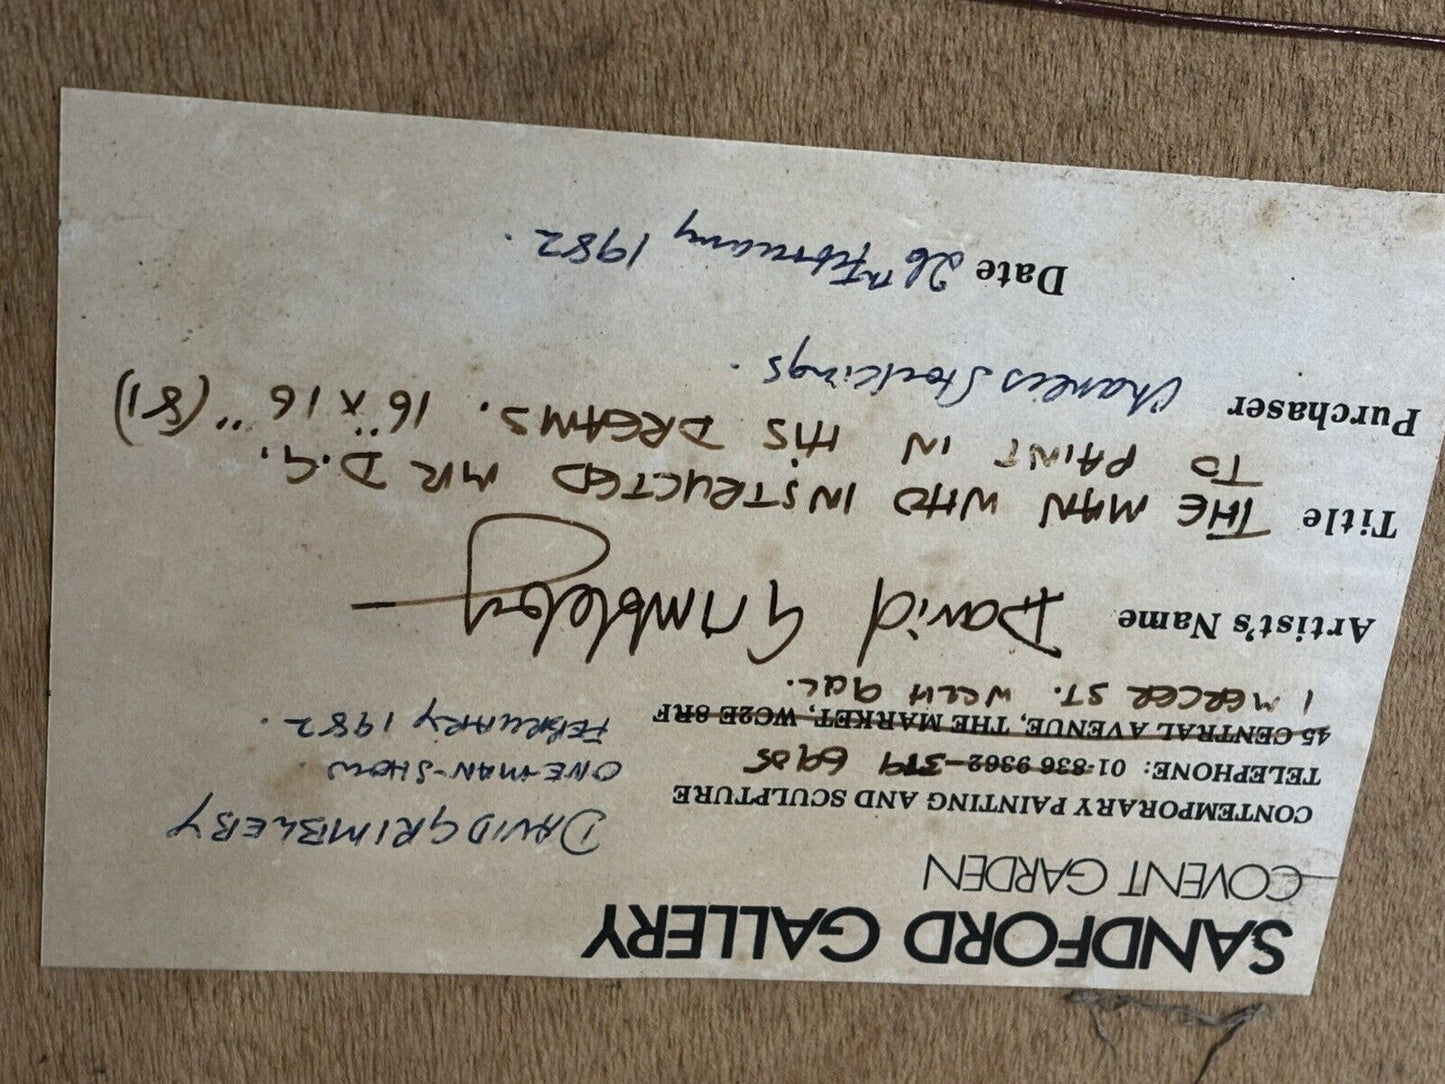 SANDFORD GALLERY
COVENT GARDEN
CONTEMPORARY PAINTING AND SCULPTURE
TELEPHONE: 01-836 9362 - 379 6905
45 CENTRAL AVENUE, THE MARKET, WC2E 8RF
1 MERCER ST. WC2H 9QL.
DAVID GRIMBLEBY
ONE-MAN-SHOW
FEBRUARY 1982.
Artist's Name David Grimbleby
Title THE MAN WHO INSTRUCTED MR D.G.
TO PAINT IN HIS DREAMS. 16" X 16" (81)
Purchaser Charles Stockings.
Date 26th February 1982.